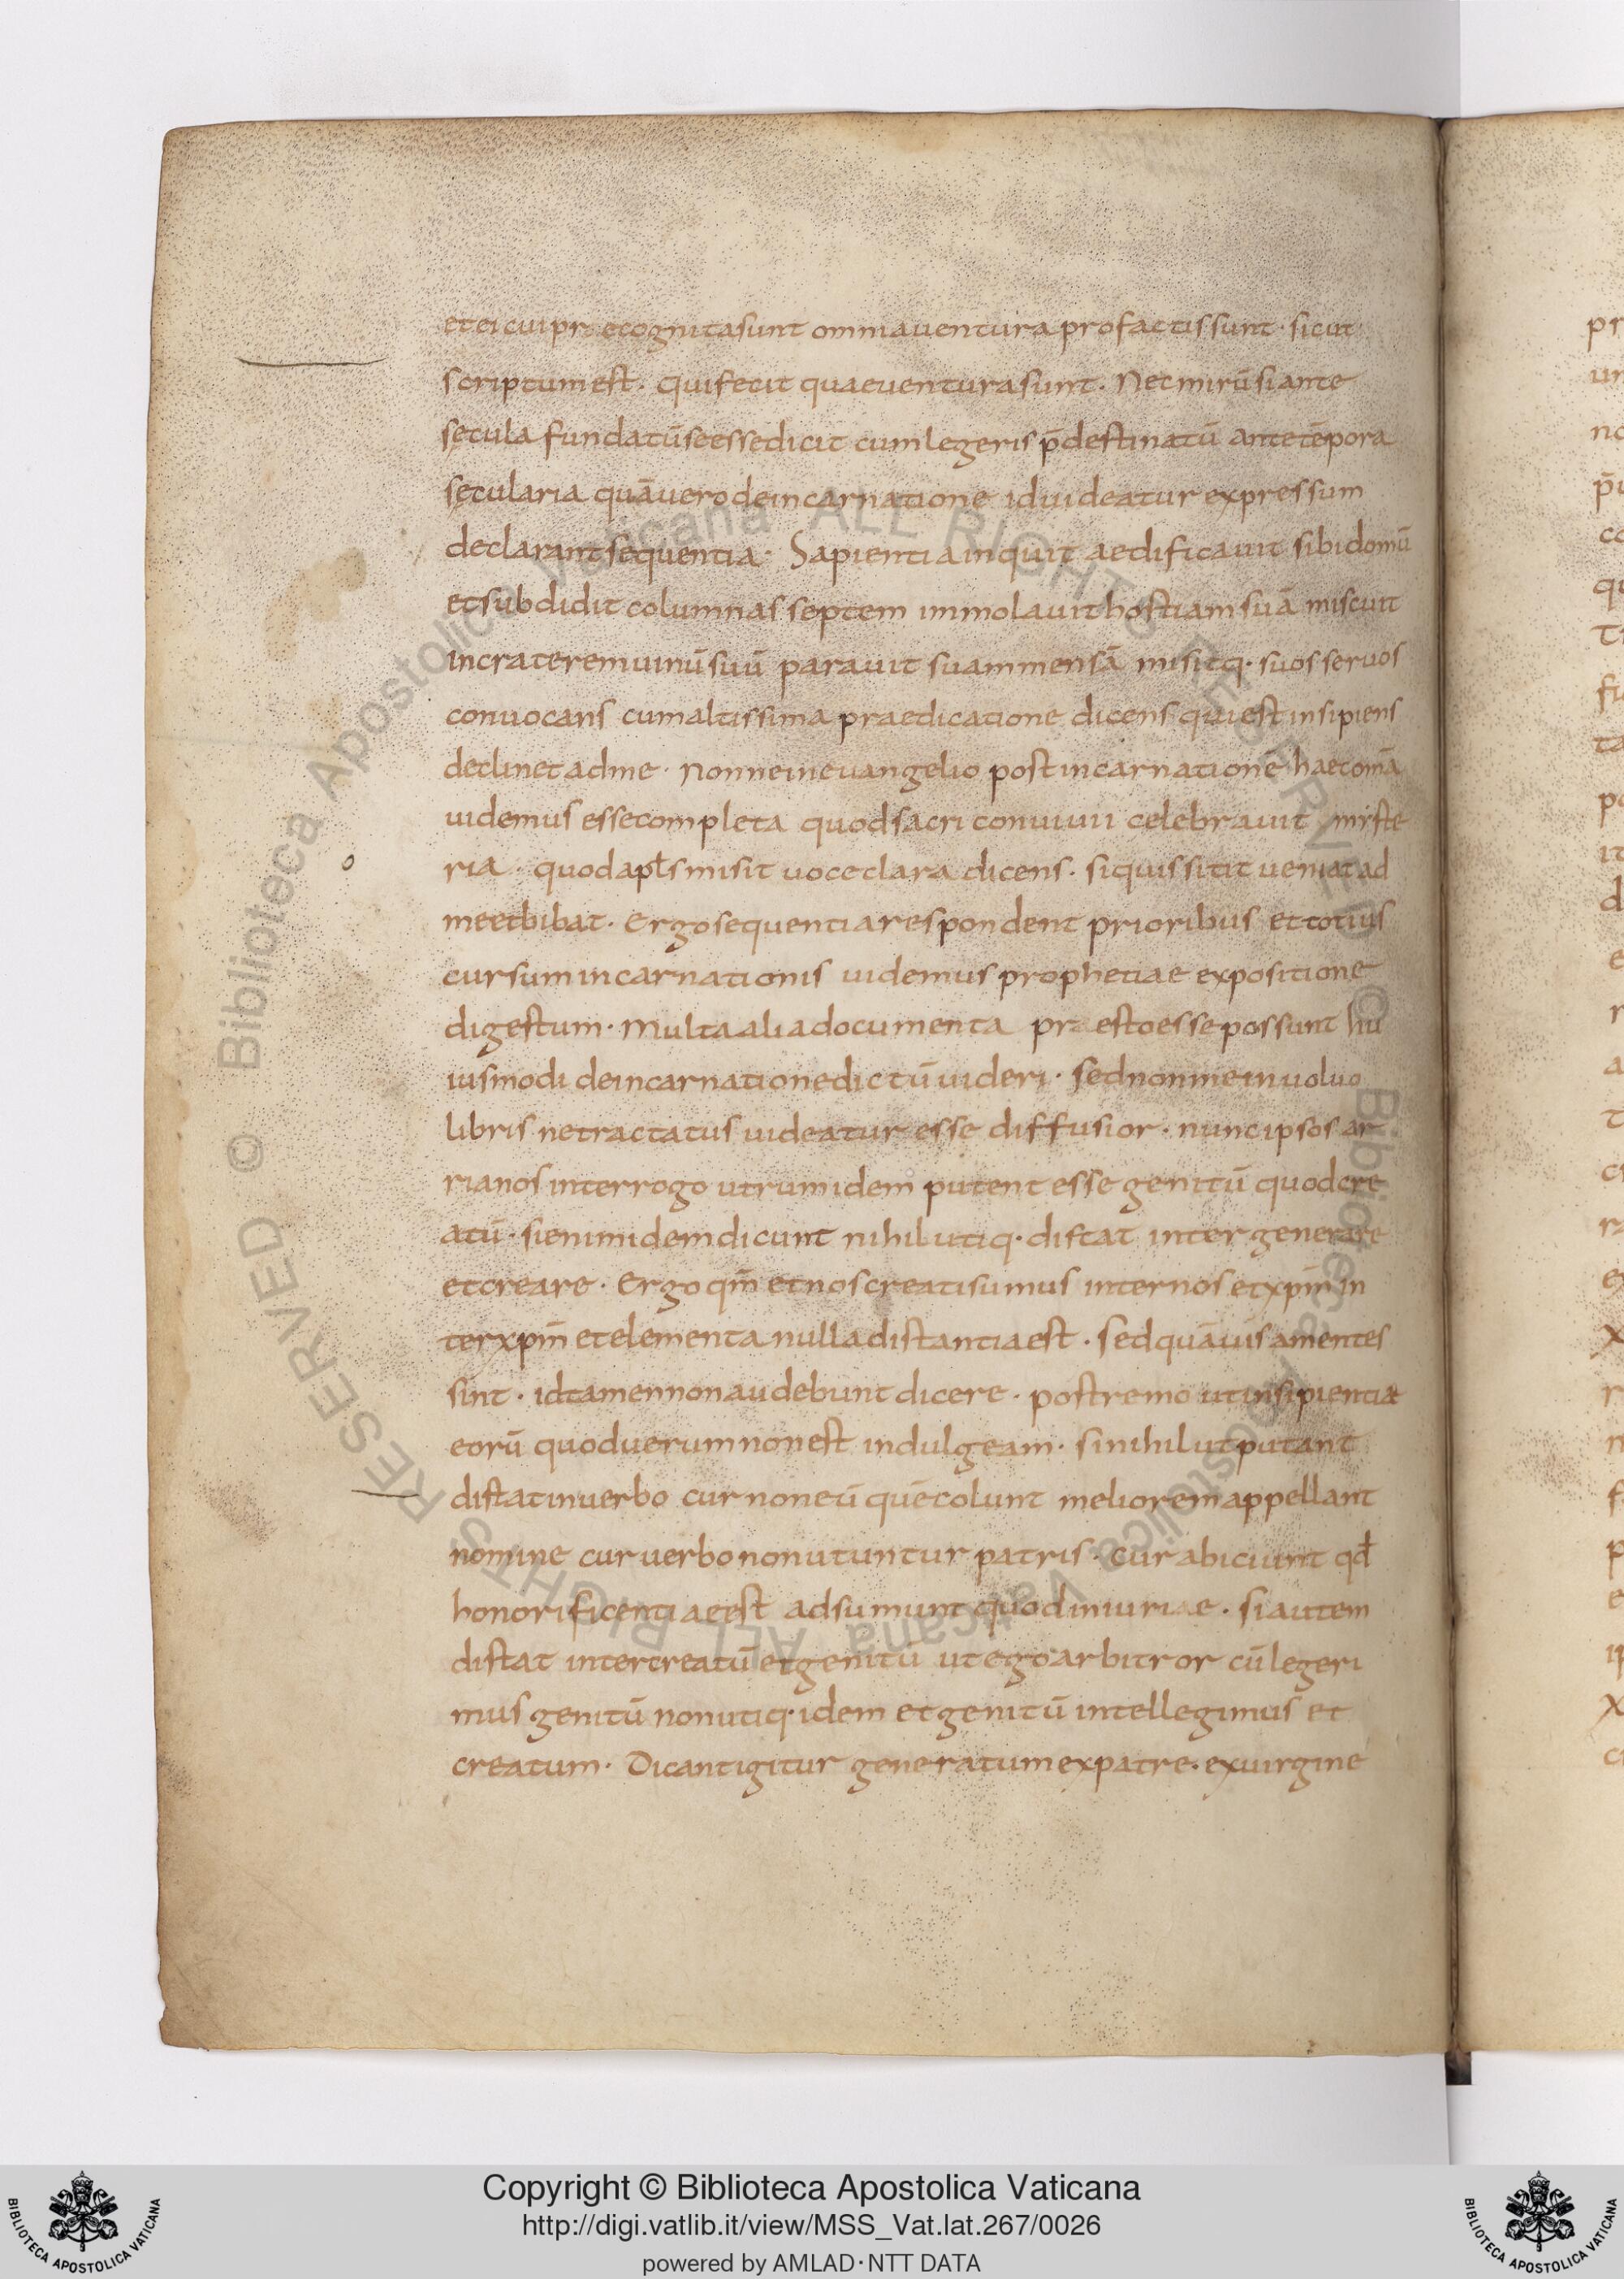 et ei cui praecognita sunt omnia uentura pro factis sunt · sicut
scriptum est · qui fecit quae uentura sunt · Nec mirū si ante
sęcula fundatū se esse dicit cum legeris p̄destinatū ante tēpora
sęcularia quā uero de incarnatione id uideatur expressum
declarant sequentia · Sapientia inquit aedificauit sibi domū
et subdidit columnas septem immolauit hostiam suā miscuit
in craterem uinū suū parauit suam mensā misitq· suos seruos
conuocans cum altissima praedicatione dicens qui est insipiens
declinet ad me · Nonne in euangelio post incarnationē haec omā
uidemus esse completa quod sacri conuiuii celebrauit miste
ria quod apłs misit uoce clara dicens · siquis sitit ueniat ad
me et bibat · Ergo sequentia respondent prioribus et totius
cursum incarnationis uidemus prophetiae expositione
digestum · Multa alia documenta praesto esse possunt hu
iusmodi de incarnatione dictū uideri · sed non inmeuoluo
libris ne tractatus uideatur esse diffusior · nunc ipsos ar
rianos interrogo utrum idem putent esse genitū quod cre
atū · si enim idem dicunt nihil utiq· distat inter generare
et creare · Ergo qm̄ et nos creati sumus inter nos et xpm̄ in
ter xpm̄ et elementa nulla distantia est · sed quāuis amentes
sint · id tamen non audebunt dicere · postremo ut insipientiæ
eorū quod uerum non est indulgeam · si nihil ut putant
distat in uerbo cur non eū quē colunt meliorem appellant
nomine cur uerbo non utuntur patris · cur abiciunt qđ
honorificentiae est adsumunt quod iniuriae · si autem
distat inter creatū et genitū ut ego arbitror cū legeri
mus genitū non utiq· idem et genitū intellegimus et
creatum · Dicant igitur generatum ex patre · ex uirgine
Copyright © Biblioteca Apostolica Vaticana
http://digi.vatlib.it/view/MSS_Vat.lat.267/0026
powered by AMLAD · NTT DATA